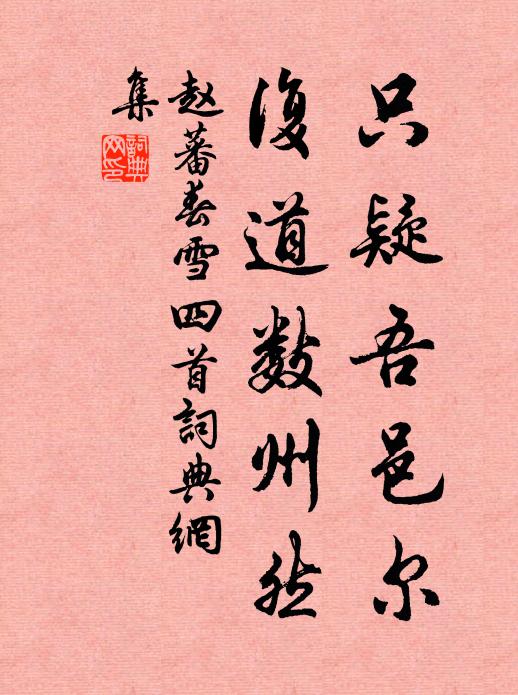 只疑吾邑尔
復道数州然
赵蕃春雪四首詞典網
集
詞典
网印